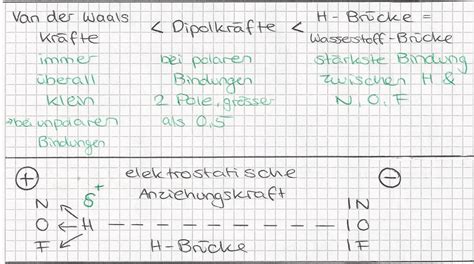 Van der Waals
Kräfte
immer
überall
klein
→ bei unpolaren
Bindungen
< Dipolkräfte <
bei polaren
Bindungen
2 Pole, grösser
als 0,5
H-Brücke =
Wasserstoff-Brücke
stärkste Bindung
zwischen H &
N, O, F
⊕ elektrostatische ⊖
Anziehungskraft
N δ+ IN
O ← H - - - - - - - - IO
F H-Brücke IF